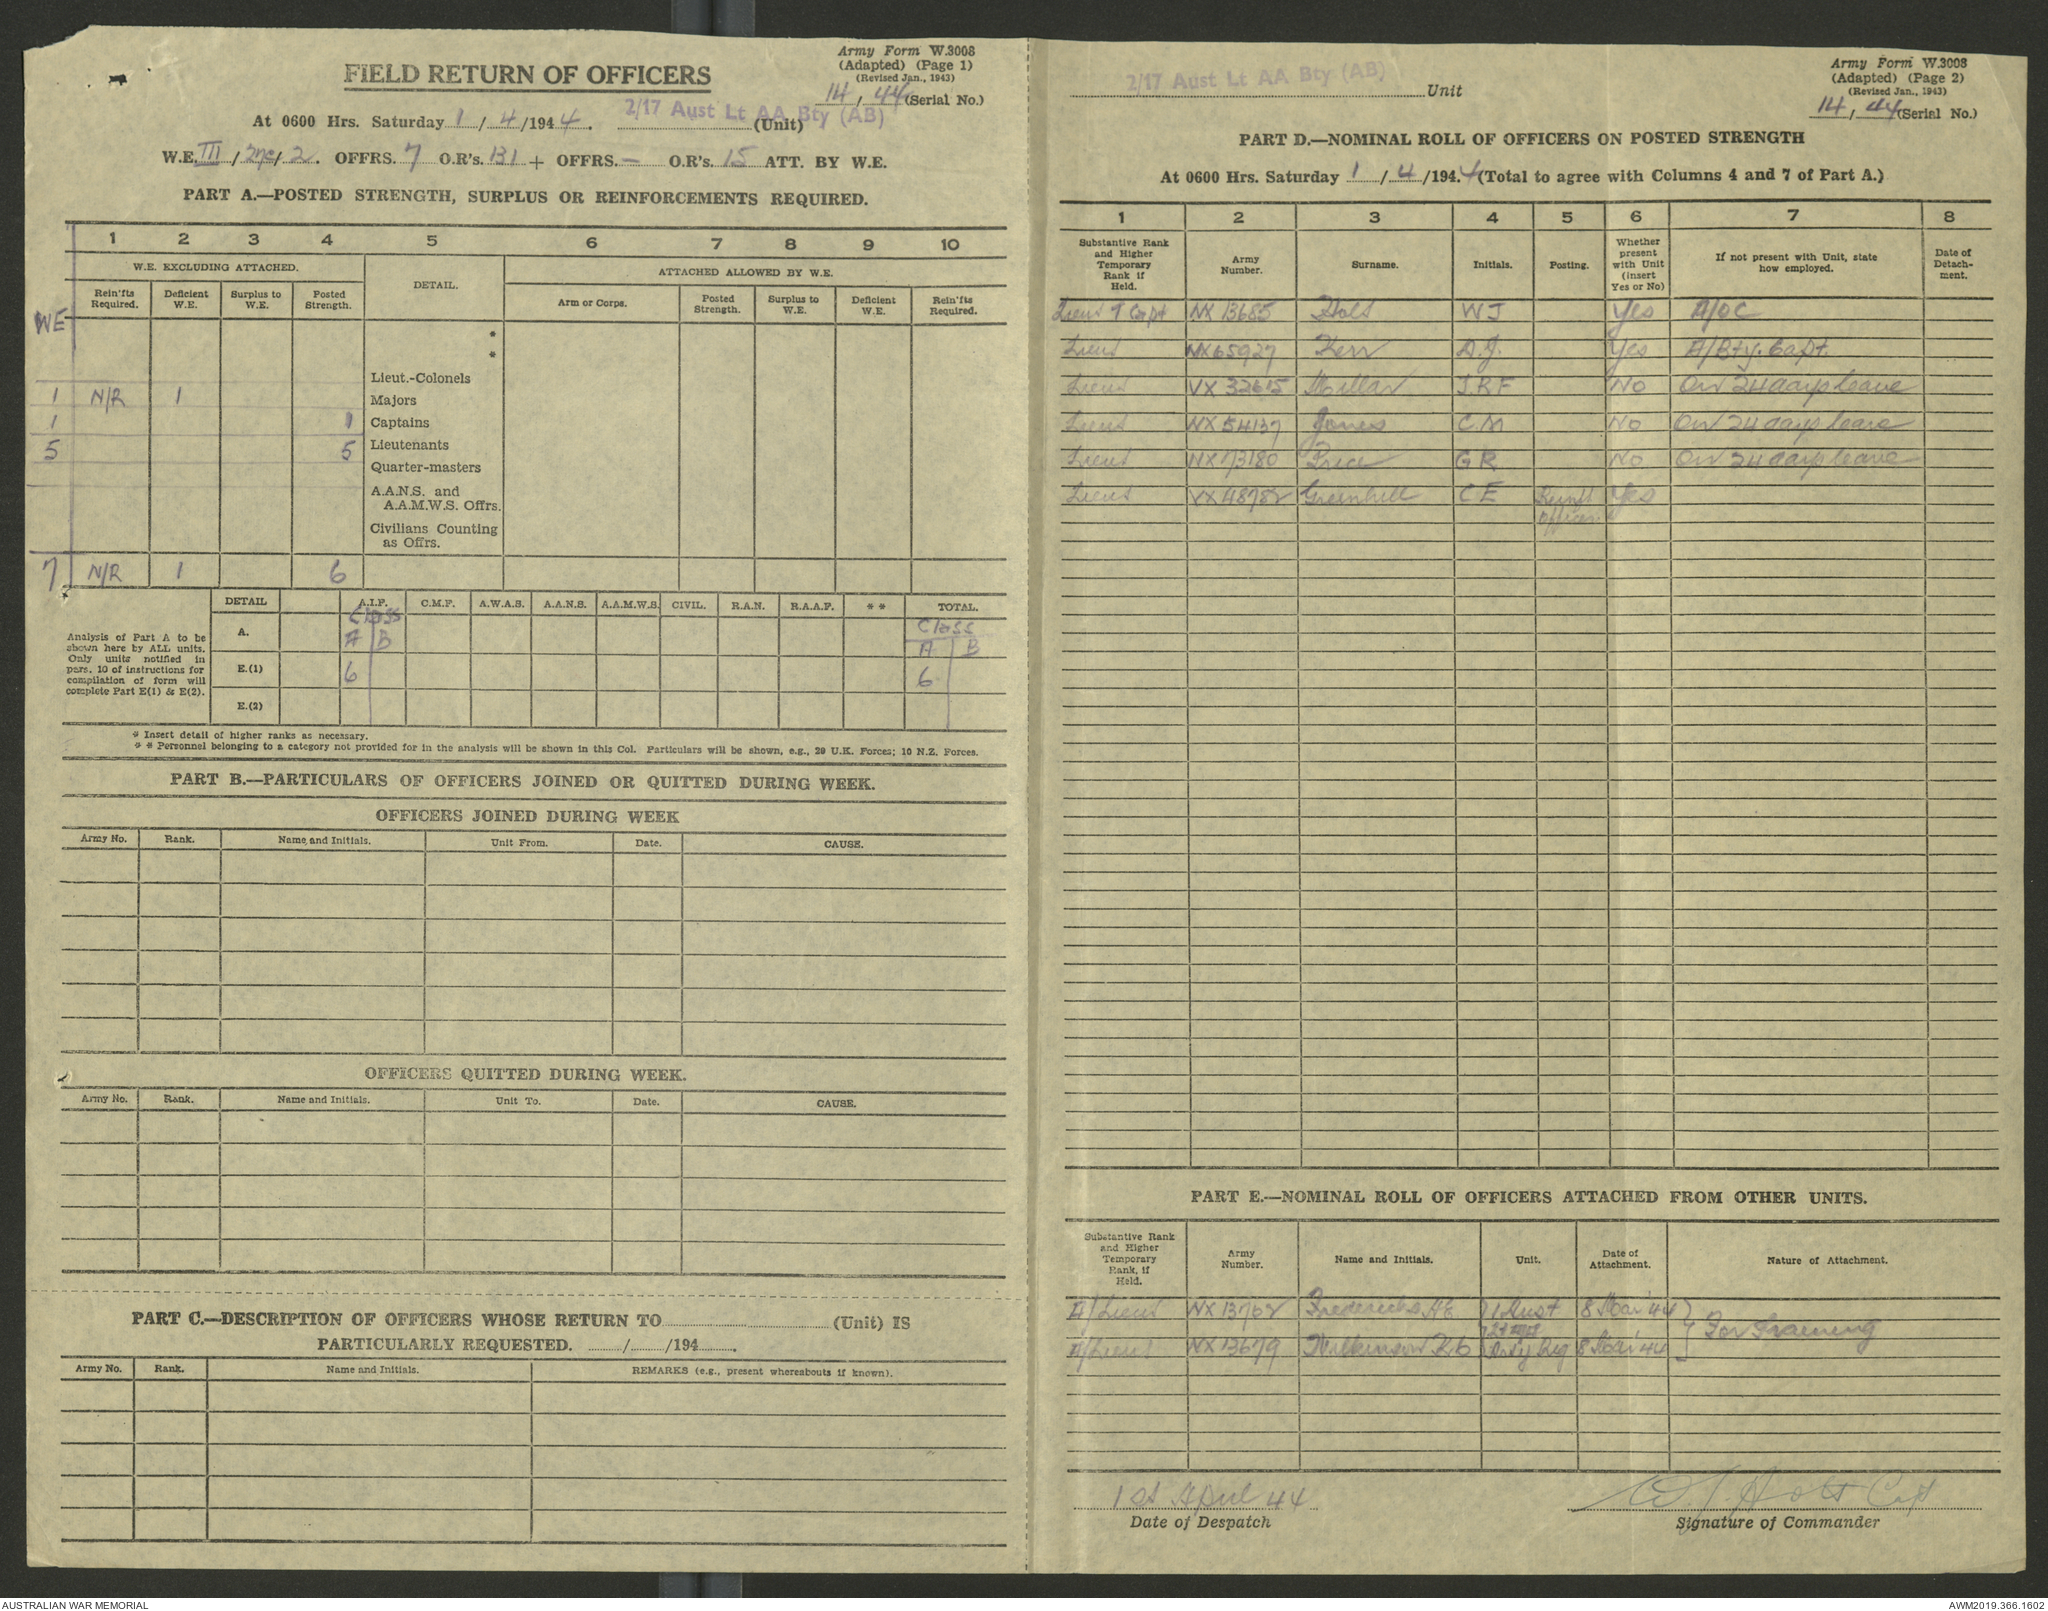 Army Form W.3008
(Adapted) (Page 1)
(Revised Jan., 1943)
FIELD RETURN OF OFFICERS
14/44 (Serial No.)
At 0600 Hrs. Saturday 1/4/1944. 2/17 Aust Lt AA Bty (AB) (Unit)
W.E. III / / 2. OFFRS. 7 O.R's. 131 + OFFRS. – O.R's. 15 ATT. BY W.E.
PART A.—POSTED STRENGTH, SURPLUS OR REINFORCEMENTS REQUIRED.
1 2 3 4 5 6 7 8 9 10
W.E. EXCLUDING ATTACHED.
DETAIL.
ATTACHED ALLOWED BY W.E.
Rein'fts Required.
Deficient W.E.
Surplus to W.E.
Posted Strength.
Arm or Corps.
Posted Strength.
Surplus to W.E.
Deficient W.E.
Rein'fts Required.
WE
*
*
Lieut.-Colonels
1 N/R 1 Majors
1 1 Captains
5 5 Lieutenants
Quarter-masters
A.A.N.S. and
A.A.M.W.S. Offrs.
Civilians Counting
as Offrs.
7 N/R 1 6
Analysis of Part A to be
shown here by ALL units.
Only units notified in
para. 10 of instructions for
compilation of form will
complete Part E(1) & E(2).
DETAIL A.I.F. C.M.F. A.W.A.S. A.A.N.S. A.A.M.W.S. CIVIL. R.A.N. R.A.A.F. ** TOTAL.
A. Class A B Class A B
E.(1) 6 6
E.(2)
* Insert detail of higher ranks as necessary.
* * Personnel belonging to a category not provided for in the analysis will be shown in this Col. Particulars will be shown, e.g., 29 U.K. Forces; 10 N.Z. Forces.
PART B.—PARTICULARS OF OFFICERS JOINED OR QUITTED DURING WEEK.
OFFICERS JOINED DURING WEEK
Army No. Rank. Name and Initials. Unit From. Date. CAUSE.
OFFICERS QUITTED DURING WEEK.
Army No. Rank. Name and Initials. Unit To. Date. CAUSE.
PART C.—DESCRIPTION OF OFFICERS WHOSE RETURN TO (Unit) IS
PARTICULARLY REQUESTED. / /194 .
Army No. Rank. Name and Initials. REMARKS (e.g., present whereabouts if known).
2/17 Aust Lt AA Bty (AB) Unit
Army Form W.3008
(Adapted) (Page 2)
(Revised Jan., 1943)
14/44 (Serial No.)
PART D.—NOMINAL ROLL OF OFFICERS ON POSTED STRENGTH
At 0600 Hrs. Saturday 1/4/1944 (Total to agree with Columns 4 and 7 of Part A.)
1 2 3 4 5 6 7 8
Substantive Rank and Higher Temporary Rank if Held.
Army Number.
Surname.
Initials.
Posting.
Whether present with Unit (insert Yes or No)
If not present with Unit, state how employed.
Date of Detachment.
Lieut T Capt NX 13685 Holt W J Yes A/OC
Lieut NX65927 Kerr A.J. Yes A/Bty. Capt.
Lieut VX 32615 Millar J.R.F No On 24 days leave
Lieut NX 54137 Jones C.M No On 24 days leave
Lieut NX73180 Price G R No On 24 days leave
Lieut VX48782 Greenhill C E Reinft Officer Yes
PART E.—NOMINAL ROLL OF OFFICERS ATTACHED FROM OTHER UNITS.
Substantive Rank and Higher Temporary Rank, if Held.
Army Number.
Name and Initials.
Unit.
Date of Attachment.
Nature of Attachment.
A/Lieut NX 13762 Fredericks. A E 1 Aust 8 Mar '44
For Training
A/Lieut NX 13679 Wilkinson 8 Mar '44
1st April 44
Date of Despatch
W J Holt Capt
Signature of Commander
AUSTRALIAN WAR MEMORIAL
AWM2019.366.1602